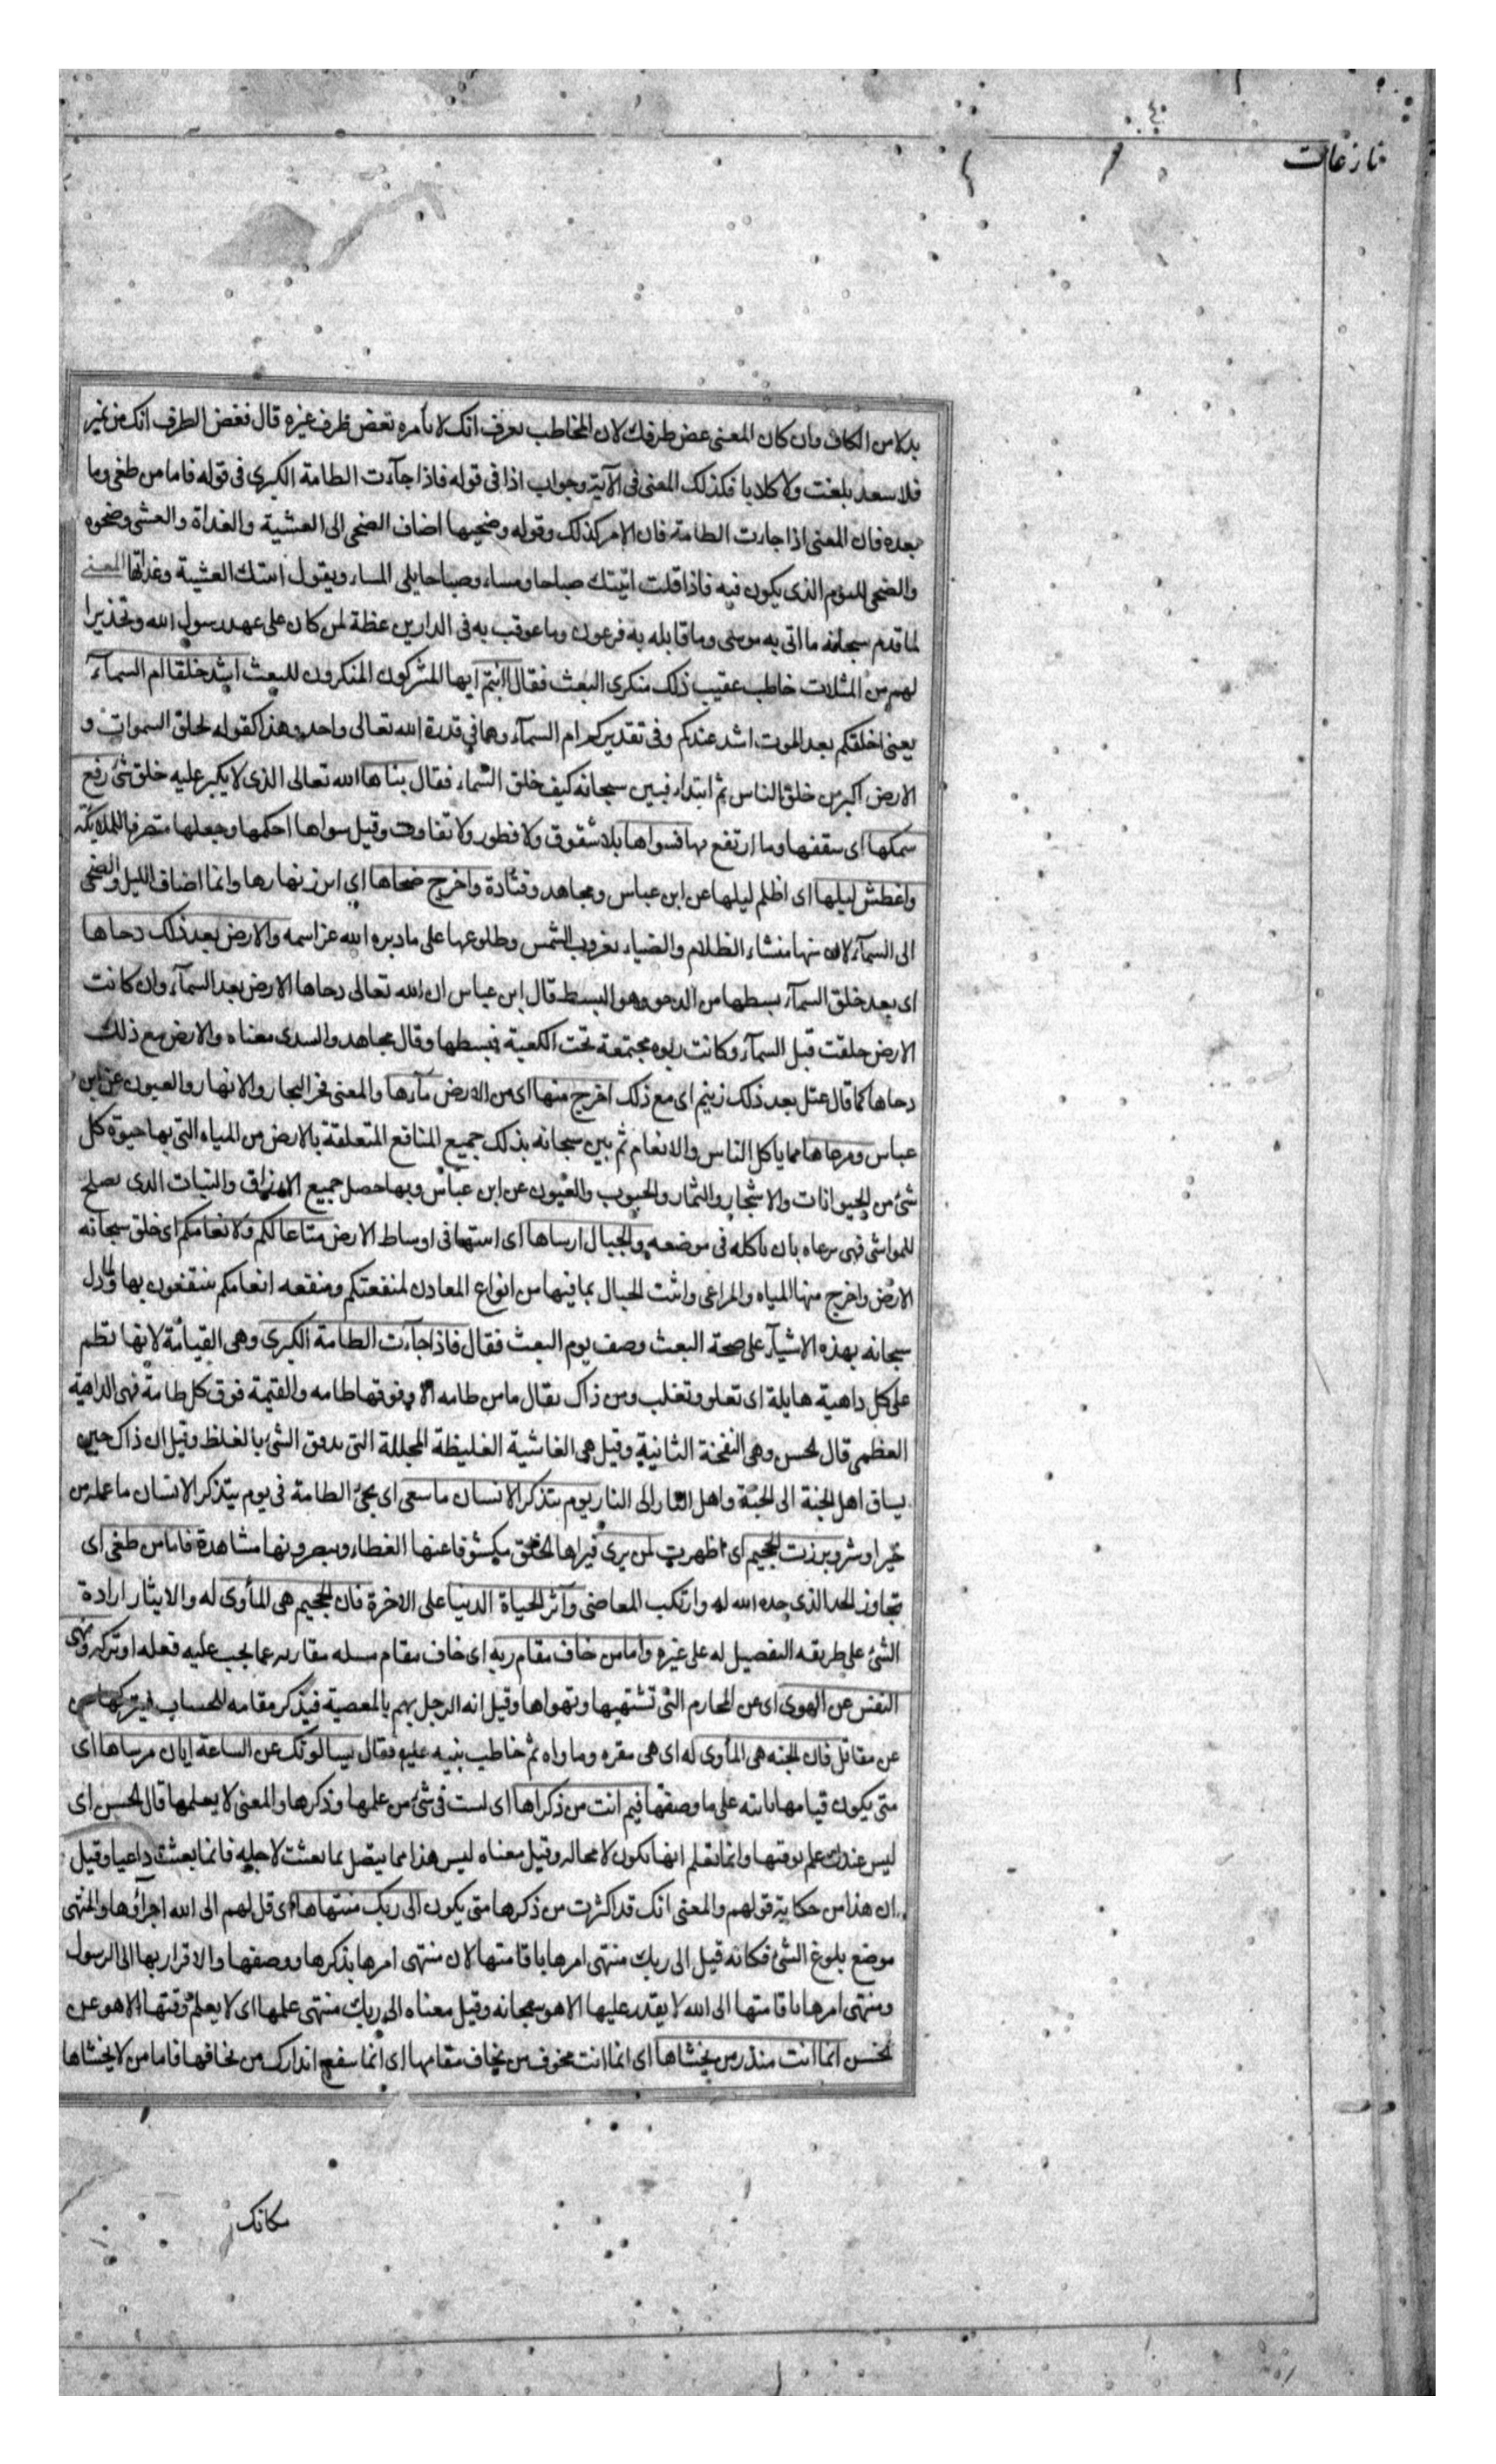 ٤٠
نازعات
بدلا من الكاف وان كان المعنى غض طرفك لان المخاطب يعرف انك لا تأمره بغض طرف غيره قال فغض الطرف انك من نمير
فلا سعد بلغت ولا كلابا فكذلك المعنى فى الآية وجواب اذا فى قوله فاذا جآءت الطامة الكبرى فى قوله فاما من طغى وما
بعده فان المعنى اذا جاءت الطامة فان الامر كذلك وقوله وضحيها اضاف الضحى الى العشية والغداة والعشى وضحوه
والضحى لليوم الذى يكون فيه فاذا قلت اتيتك صباحا ومساء وصباحا يلى المساء ويقول اتيتك العشية وغداتها المعنى
لما قدم سبحانه ما اتى به موسى وما قابله به فرعون وما عوقب به فى الدارين عظة لمن كان على عهد رسول الله وتحذيرا
لهم من المثلات خاطب عقيب ذلك منكرى البعث فقال اانتم ايها المشركون المنكرون للبعث اشد خلقا ام السمآء
يعنى اخلقكم بعد الموت اشد عندكم وفى تقديركم ام السمآء وهما فى قدرة الله تعالى واحد وهذا كقوله لخلق السموات و
الارض اكبر من خلق الناس ثم ابتداء فبين سبحانه كيف خلق السمآء فقال بناها الله تعالى الذى لا يكبر عليه خلق شئ رفع
سمكها اى سقفها وما ارتفع منها فسواها بلا شقوق ولا فطور ولا تفاوت وقيل سواها احكمها وجعلها متصرفا للملائكة
واغطش ليلها اى اظلم ليلها عن ابن عباس ومجاهد وقتادة واخرج ضحاها اي ابرز نهارها وانما اضاف الليل والضحى
الى السمآء لان منها منشاء الظلام والضياء بغروب الشمس وطلوعها على ما دبره الله عز اسمه والارض بعد ذلك دحاها
اى بعد خلق السمآء بسطها من الدحو وهو البسط قال ابن عباس ان الله تعالى دحاها الارض بعد السمآء وان كانت
الارض خلقت قبل السمآء وكانت ربوه مجتمعة تحت الكعبة فبسطها وقال مجاهد والسدى معناه والارض مع ذلك
دحاها كما قال عتل بعد ذلك زنيم اى مع ذلك اخرج منها اى من الارض مآءها والمعنى فجر البحار والانهار والعيون عن ابن
عباس ومرعاها مما ياكل الناس والانعام ثم بين سبحانه بذلك جميع المنافع المتعلقة بالارض من المياه التى بها حيوة كل
شئ من الحيوانات والاشجار والثمار والحبوب والعيون عن ابن عباس وبها حصل جميع الارزاق والنبات الذى يصلح
للمواشى فهى مرعاه بان تاكله فى موضعه والجبال ارساها اى اثبتها فى اوساط الارض متاعا لكم ولانعامكم اى خلق سبحانه
الارض واخرج منها المياه والمراعى واثبت الجبال بما فيها من انواع المعادن لمنفعتكم ومنفعه انعامكم تنتفعون بها ولما دل
سبحانه بهذه الاشيآء على صحة البعث وصف يوم البعث فقال فاذا جآءت الطامة الكبرى وهى القيامة لانها تطم
على كل داهية هايلة اى تعلو وتغلب ومن ذاك يقال ما من طامه الا وفوقها طامه والقيمة فوق كل طامة فهى الداهية
العظمى قال الحسن وهى النفخة الثانية وقيل هى الغاشية الغليظة المجللة التى تدفق الشئ بالغلظ وقيل ان ذاك حين
يساق اهل الجنة الى الجنة واهل النار الى النار يوم يتذكر الانسان ما سعى اى تجئ الطامة فى يوم يتذكر الانسان ما عمله من
خير او شر وبرزت الجحيم اى اظهرت لمن يرى فيراها الخلق مكشوفا عنها الغطاء ويبصرونها مشاهدة فاما من طغى اى
تجاوز الحد الذى حده الله له وارتكب المعاصى وآثر الحياة الدنيا على الاخرة فان الجحيم هى المأوى له والايثار ارادة
الشئ على طريقه التفصيل له على غيره واما من خاف مقام ربه اى خاف مقام مسله مقاربه عما يجب عليه فعله او تركه ونهى
النفس عن الهوى اى عن المحارم التى تشتهيها وتهواها وقيل انه الرجل يهم بالمعصية فيذكر مقامه للحساب فيتركها
عن مقاتل فان الجنه هى المأوى له اى هى مقره وماواه ثم خاطب نبيه عليه فقال يسالونك عن الساعة ايان مرساها اى
متى يكون قيامها ثابته على ما وصفتها فيم انت من ذكراها اى لست فى شئ من علمها وذكرها والمعنى لا يعلمها قال الحسن اى
ليس عندك علم بوقتها وانما تعلم انها تكون لا محاله وقيل معناه ليس هذا مما يتصل بما بعثت لاجله فانما بعثت داعيا وقيل
ان هذا من حكاية قولهم والمعنى انك قد اكثرت من ذكرها متى يكون الى ربك منتهاها اى قل لهم الى الله اجرآؤها والمنتهى
موضع بلوغ الشئ فكانه قيل الى ربك منتهى امرها باقامتها لان منتهى امرها بذكرها ووصفها والاقرار بها الى الرسول
ومنتهى امرها باقامتها الى الله لا يقدر عليها الا هو سبحانه وقيل معناه الى ربك منتهى علمها اى لا يعلم وقتها الا هو عن
الحسن انما انت منذر من يخشاها اى انما انت مخوف من يخاف مقامها اى انما ينفع انذارك من يخافها فاما من لا يخشاها
مكانك